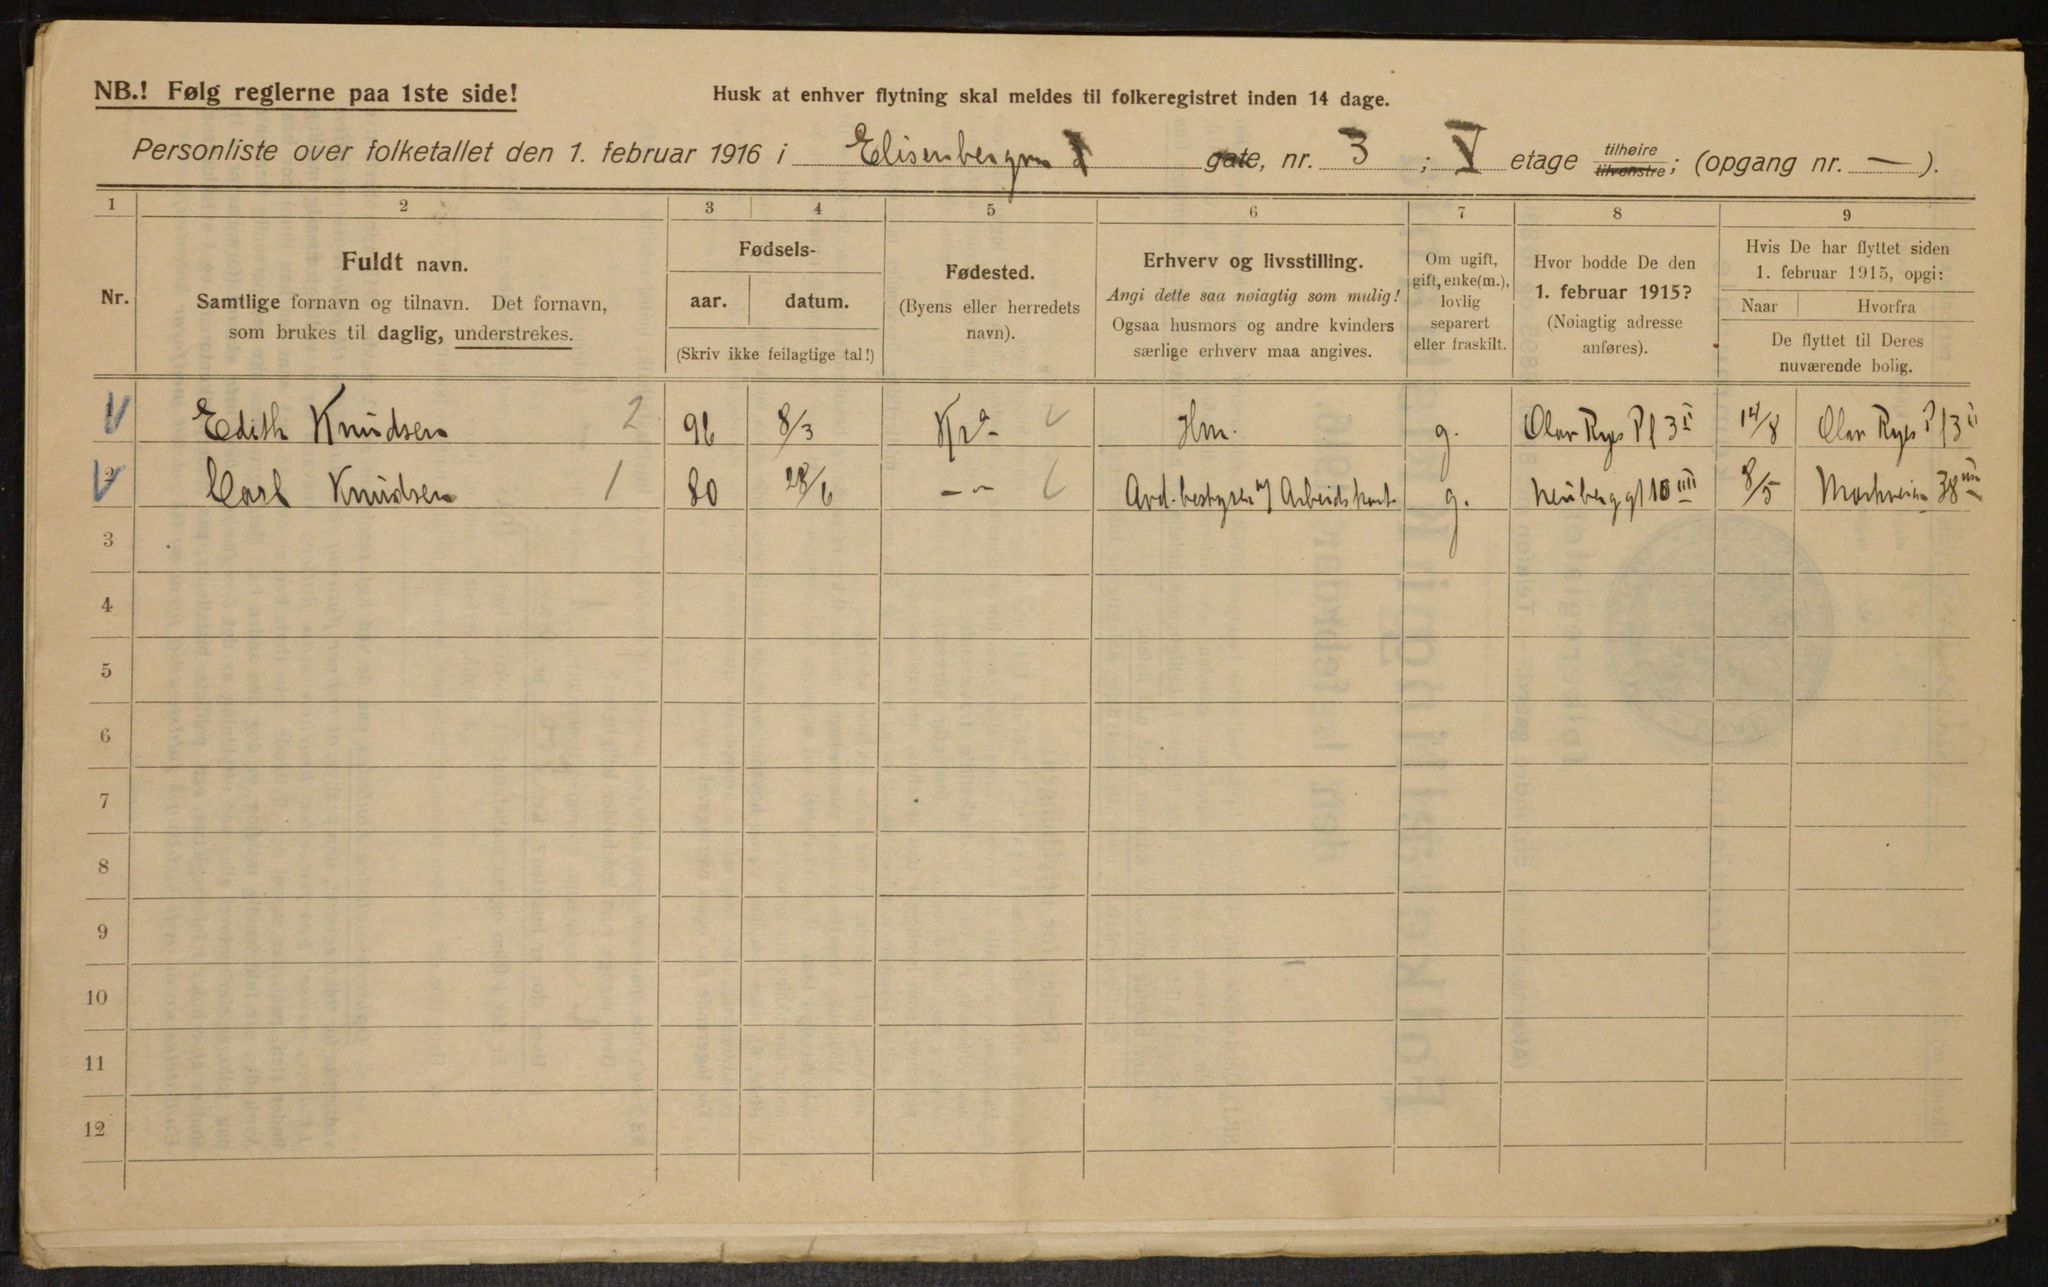 NB.! Følg reglerne paa 1ste side!
Husk at enhver flytning skal meldes til folkeregistret inden 14 dage.
Personliste over folketallet den 1. februar 1916 i Elisenbergvn gate, nr. 3 ; V etage tilhøire tilvenstre; (opgang nr. — ).
1 2 3 4 5 6 7 8 9
Nr.
Fuldt navn.
Samtlige fornavn og tilnavn. Det fornavn,
som brukes til daglig, understrekes.
Fødsels-
aar. datum.
(Skriv ikke feilagtige tal!)
Fødested.
(Byens eller herredets
navn).
Erhverv og livsstilling.
Angi dette saa nøiagtig som mulig!
Ogsaa husmors og andre kvinders
særlige erhverv maa angives.
Om ugift,
gift, enke(m.),
lovlig
separert
eller fraskilt.
Hvor bodde De den
1. februar 1915?
(Nøiagtig adresse
anføres).
Hvis De har flyttet siden
1. februar 1915, opgi:
Naar Hvorfra
De flyttet til Deres
nuværende bolig.
1 Edith Knudsen 2 96 8/3 Kr.a Hm. g. Olav Ryes Pl 3 II 14/8 Olav Ryes Pl 3 II
2 Carl Knudsen 1 80 28/6 –〃– Avd.bestyrer v/ Arbeidskont. g. Neuberggt 10 IIII 8/5 Markveien 38 III
3
4
5
6
7
8
9
10
11
12